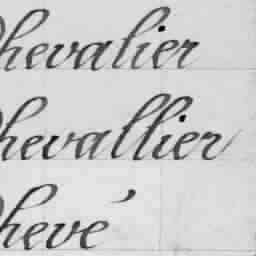 Chevalier
Chevallier
Chevé